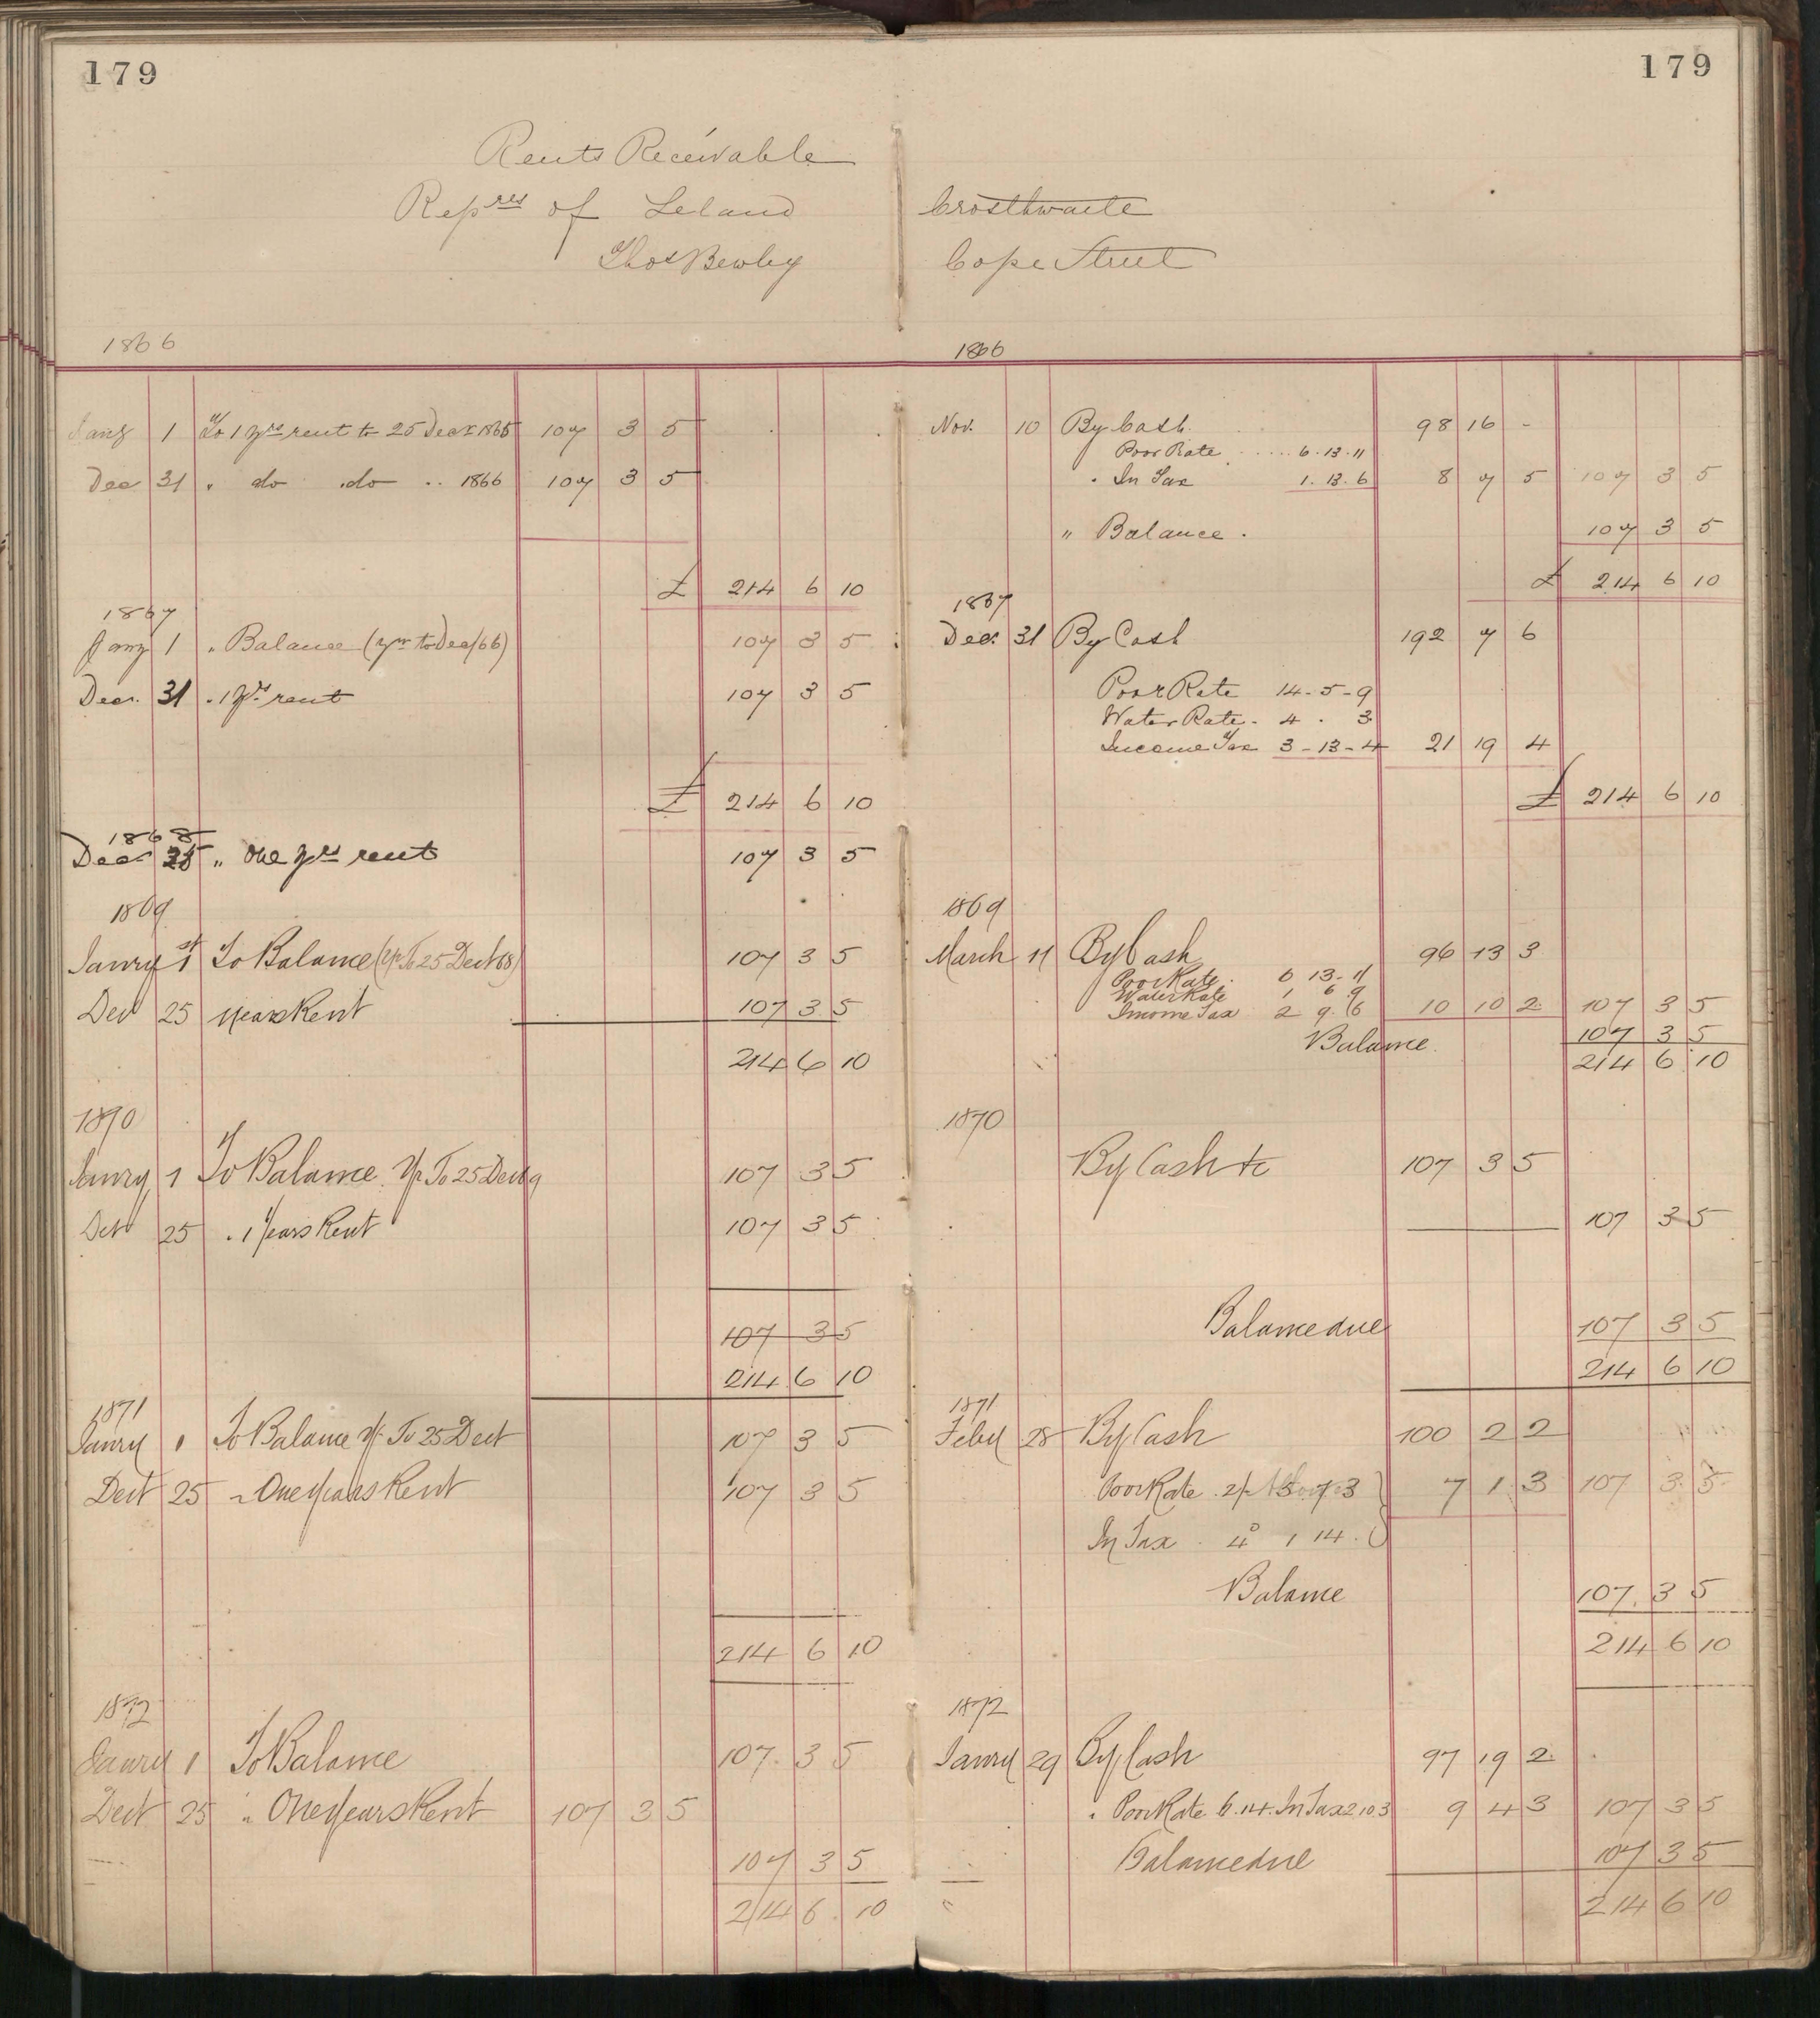 179 179
Rents Receivable
Repres of Leland Crosthwaite
Thos Bewley Cope Street
1866
Jany 1 To 1 yrs rent to 25 Decr 1865 107 3 5
Dec 31 " do do 1866 107 3 5
£ 214 6 10
1867
Jany 1 " Balance (yr to Dec/66) 107 3 5
Decr. 31 " 1 yrs rent 107 3 5
£ 214 6 10
1868
Decr 25 " One yrs rent 107 3 5
1869
Janry 1st To Balance (yr To 25 Dect 68) 107 3 5
Der 25 years Rent 107 3 5
214 6 10
1870
Janry 1 To Balance yr To 25 Dect 69 107 3 5
Dect 25 " 1 years Rent 107 3 5
107 3 5
214 6 10
1871
Janry 1 To Balance yr To 25 Dect 107 3 5
Dect 25 " One years Rent 107 3 5
214 6 10
1872
Janry 1 To Balance 107 3 5
Dect 25 " One years Rent 107 3 5
107 3 5
214 6 10
1866
Nov. 10 By Cash 98 16 -
Poor Rate 6. 13. 11
" In Tax 1. 13. 6 8 7 5 107 3 5
" Balance. 107 3 5
£ 214 6 10
1867
Dec. 31 By Cash 192 7 6
Poor Rate 14-5-9
Water Rate - 4 . 3
Income Tax 3-13-4 21 19 4
£ 214 6 10
1869
March 11 By Cash 96 13 3
Poor Rate. 6 13-11
Water Rate 1 6 9
Income Tax 2 9 6 10 10 2 107 3 5
Balance 107 3 5
214 6 10
1870
By Cash &c 107 3 5
107 3 5
Balance due 107 3 5
214 6 10
1871
Feby 28 By Cash 100 2 2
Poor Rate 2/- 5 7 3 7 1 3 107 3 5
In Tax . 4d 1 14 .
Balance 107 3 5
214 6 10
1872
Janry 29 By Cash 97 19 2
" Poor Rate 6.14. In Tax 2 10 3 9 4 3 107 3 5
Balance due 107 3 5
214 6 10